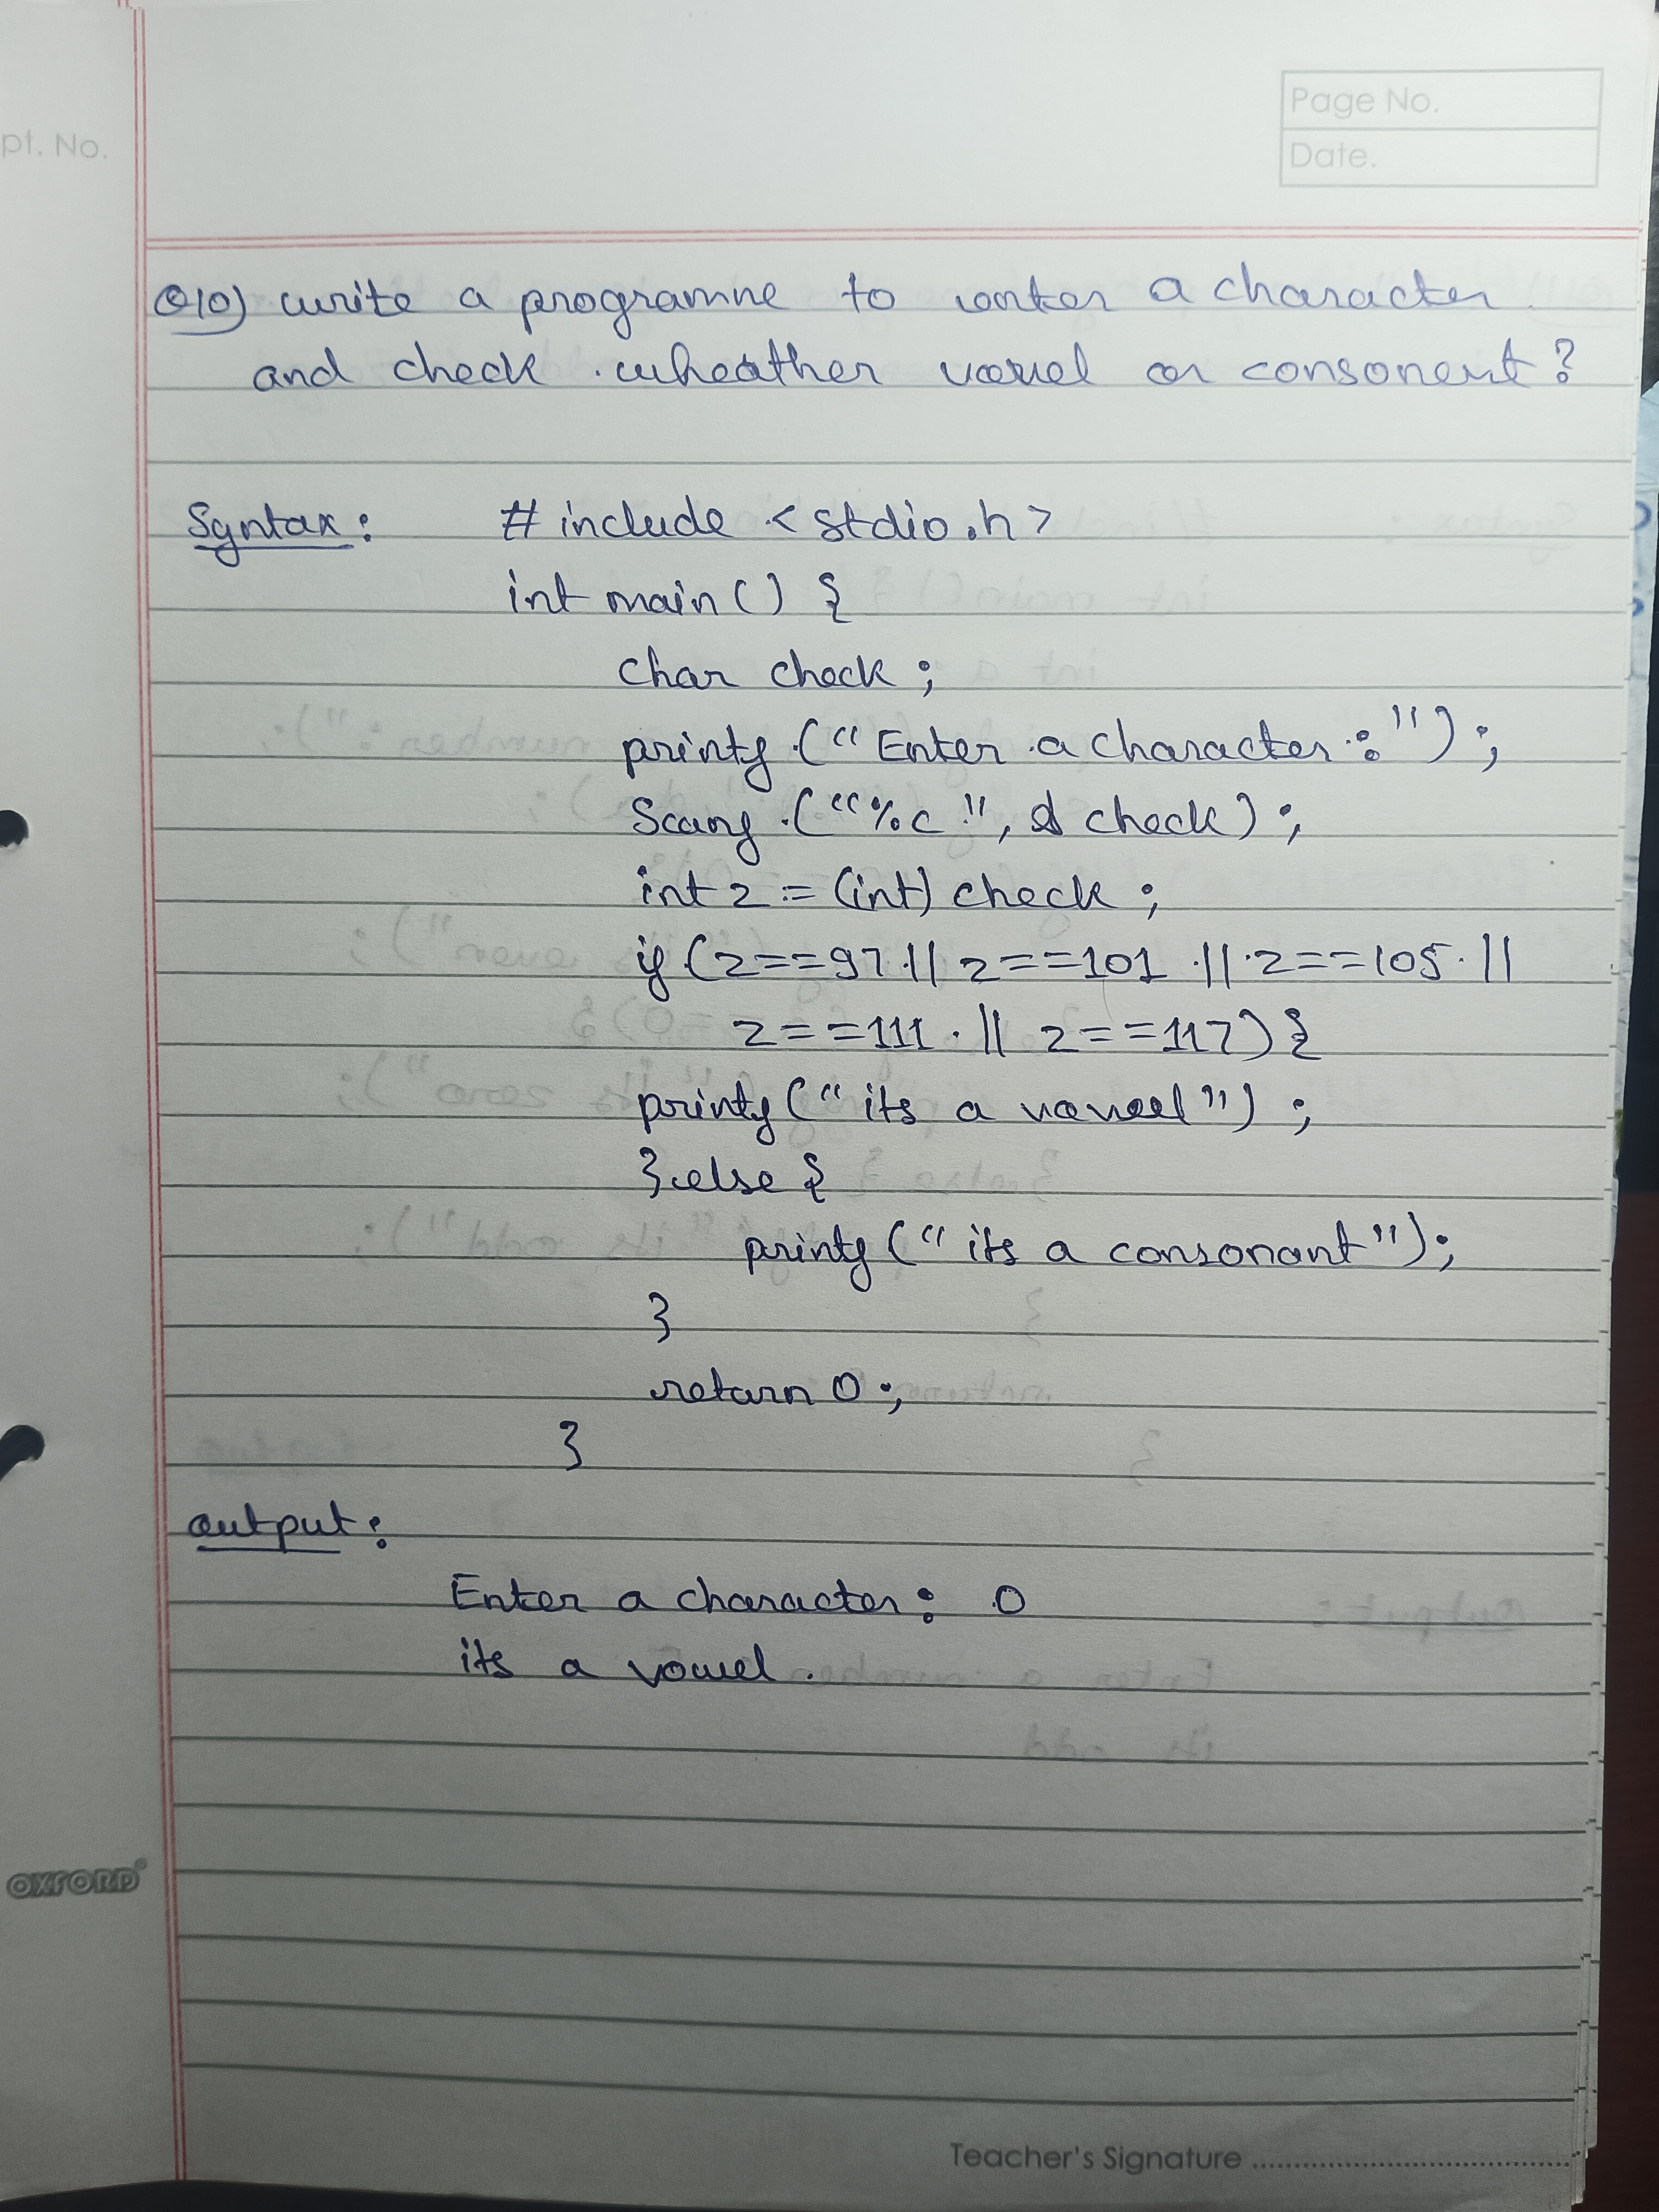 pt. No.
Page No.
Date.
Q10) write a programme to enter a character
and check wheather vowel or consonent?
Syntax: # include <stdio.h>
int main() {
char check;
printf ("Enter a character:");
Scanf ("%c", & check);
int z = (int) check;
if (z==97 || z==101 || z==105 ||
z==111 || z==117) {
printf ("its a vowel");
} else {
printf ("its a consonant");
}
return 0;
}
output:
Enter a character: o
its a vowel.
OXFORD
Teacher's Signature